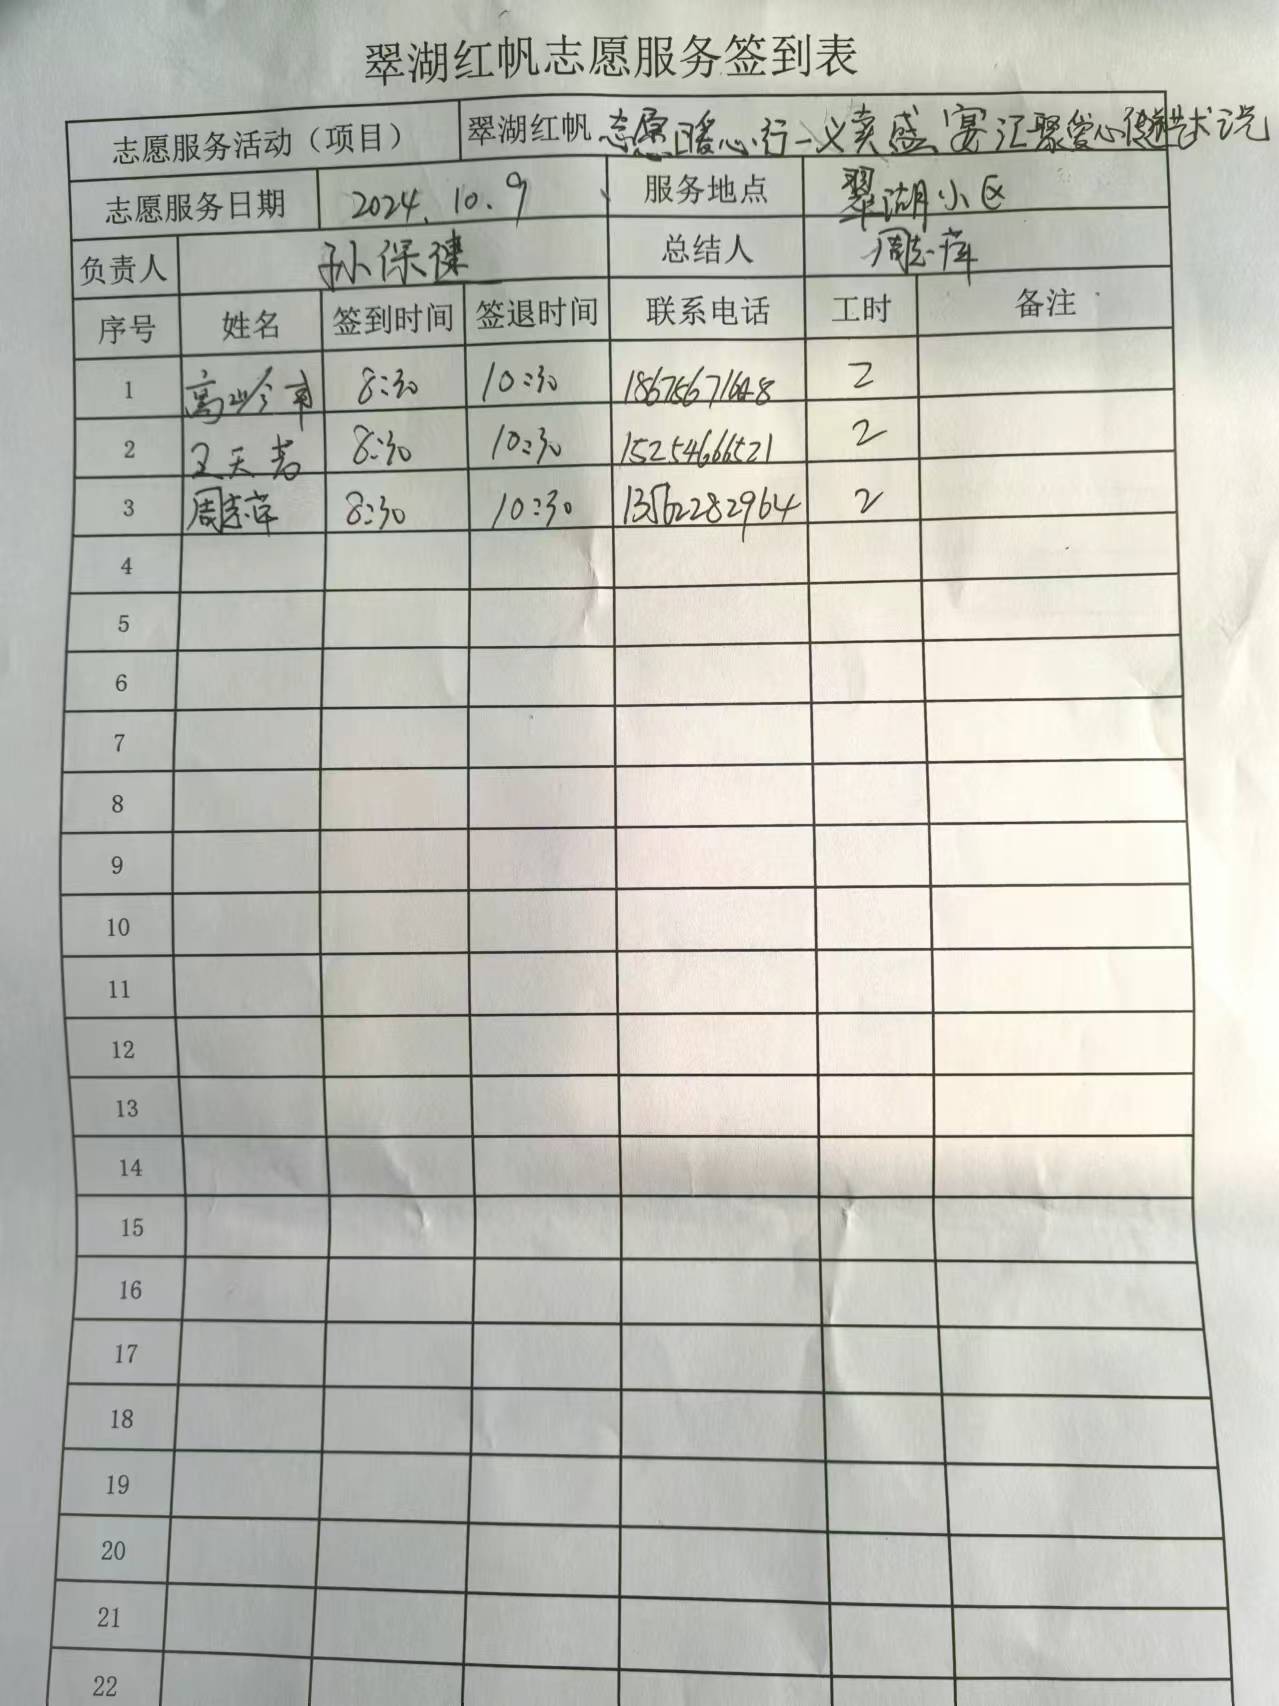 翠湖红帆志愿服务签到表
志愿服务活动（项目） 翠湖红帆 志愿暖心行一义卖盛宴汇聚爱心 艺术
志愿服务日期 2024.10.9 服务地点 翠湖小区
负责人 孙保健 总结人 周志萍
序号 姓名 签到时间 签退时间 联系电话 工时 备注
1 高 8:30 10:30 2
2 王天 8:30 10:30 15254666521 2
3 周志萍 8:30 10:30 13562282964 2
4
5
6
7
8
9
10
11
12
13
14
15
16
17
18
19
20
21
22